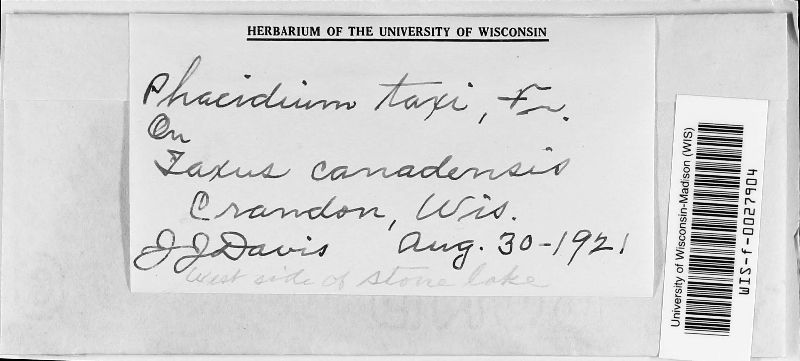 HERBARIUM OF THE UNIVERSITY OF WISCONSIN
Phacidium taxi, Fr.
On
Taxus canadensis
Crandon, Wis.
J J Davis Aug. 30-1921
West side of stone lake
University of Wisconsin-Madison (WIS)
WIS-f-0027904